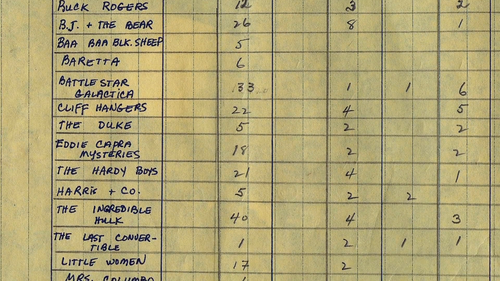 BUCK ROGERS 12 3 2
B.J. + THE BEAR 26 8 1
BAA BAA BLK. SHEEP 5
BARETTA 6
BATTLESTAR
GALACTICA 33 1 1 6
CLIFF HANGERS 22 4 5
THE DUKE 5 2 2
EDDIE CAPRA
MYSTERIES 18 2 2
THE HARDY BOYS 21 4 1
HARRIS + CO. 5 2 2
THE INCREDIBLE
HULK 40 4 3
THE LAST CONVER-
TIBLE 1 2 1 1
LITTLE WOMEN 17 2
MRS. COLUMBO